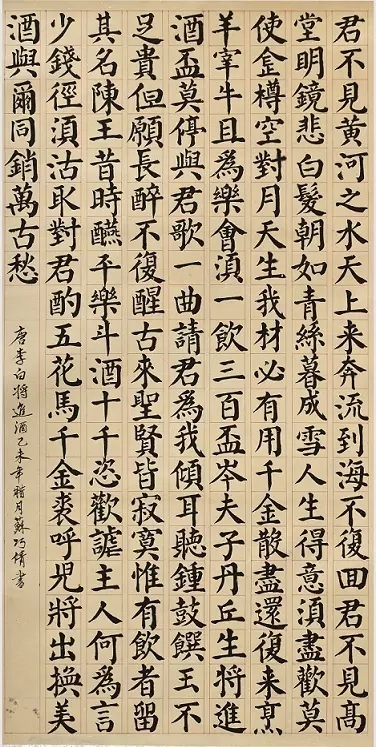 君不見黃河之水天上来奔流到海不復回君不見髙
堂明鏡悲白髮朝如青絲暮成雪人生得意湏盡歡莫
使金樽空對月天生我材必有用千金散盡還復来烹
羊宰牛且為樂會湏一飲三百盃岑夫子丹丘生將進
酒盃莫停與君歌一曲請君為我傾耳聽鍾鼓饌玉不
足貴但願長醉不復醒古來聖賢皆寂寞惟有飲者留
其名陳王昔時醼平樂斗酒十千恣歡謔主人何為言
少錢徑湏沽取對君酌五花馬千金裘呼児將出換美
酒與爾同銷萬古愁
唐李白将進酒乙未年腊月蘇巧倩書